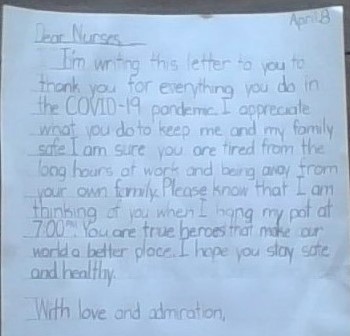 April 8
Dear Nurses
I'm writing this letter to you to
thank you for everything you do in
the COVID-19 pandemic. I appreciate
what you do to keep me and my family
safe I am sure you are tired from the
long hours of work and being away from
your own family. Please know that I am
thinking of you when I bang my pot at
7:00pm. You are true heroes that make our
world a better place. I hope you stay safe
and healthy.
With love and admiration,